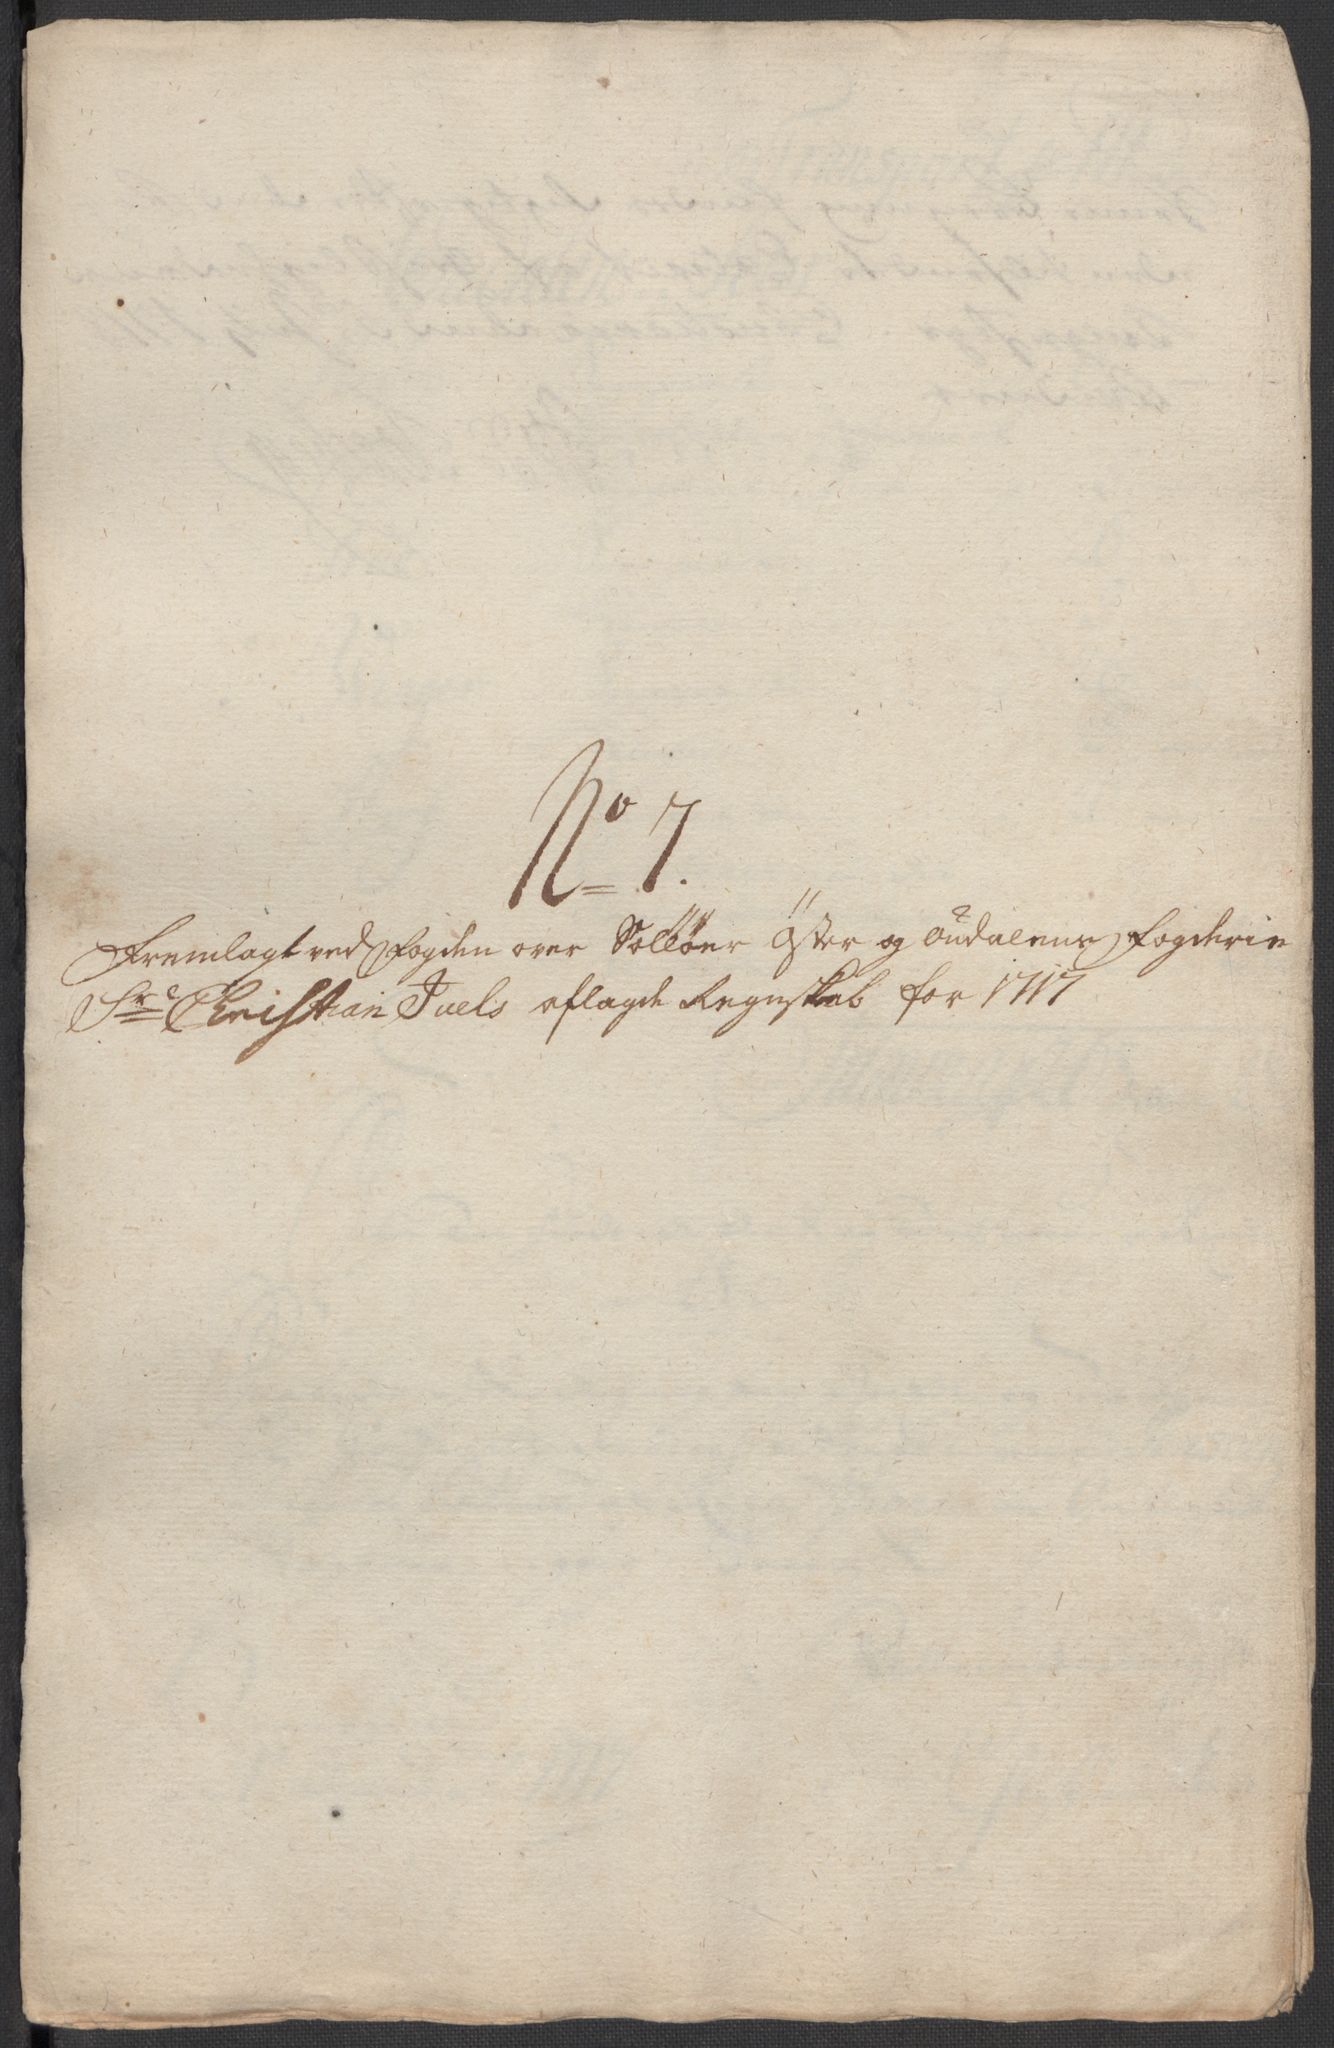 No 7.
Fremlagt ved Fogden over Solløer Öster og Oudalens Fogderie
Sr Christian Juels aflagde Regnskab for 1717